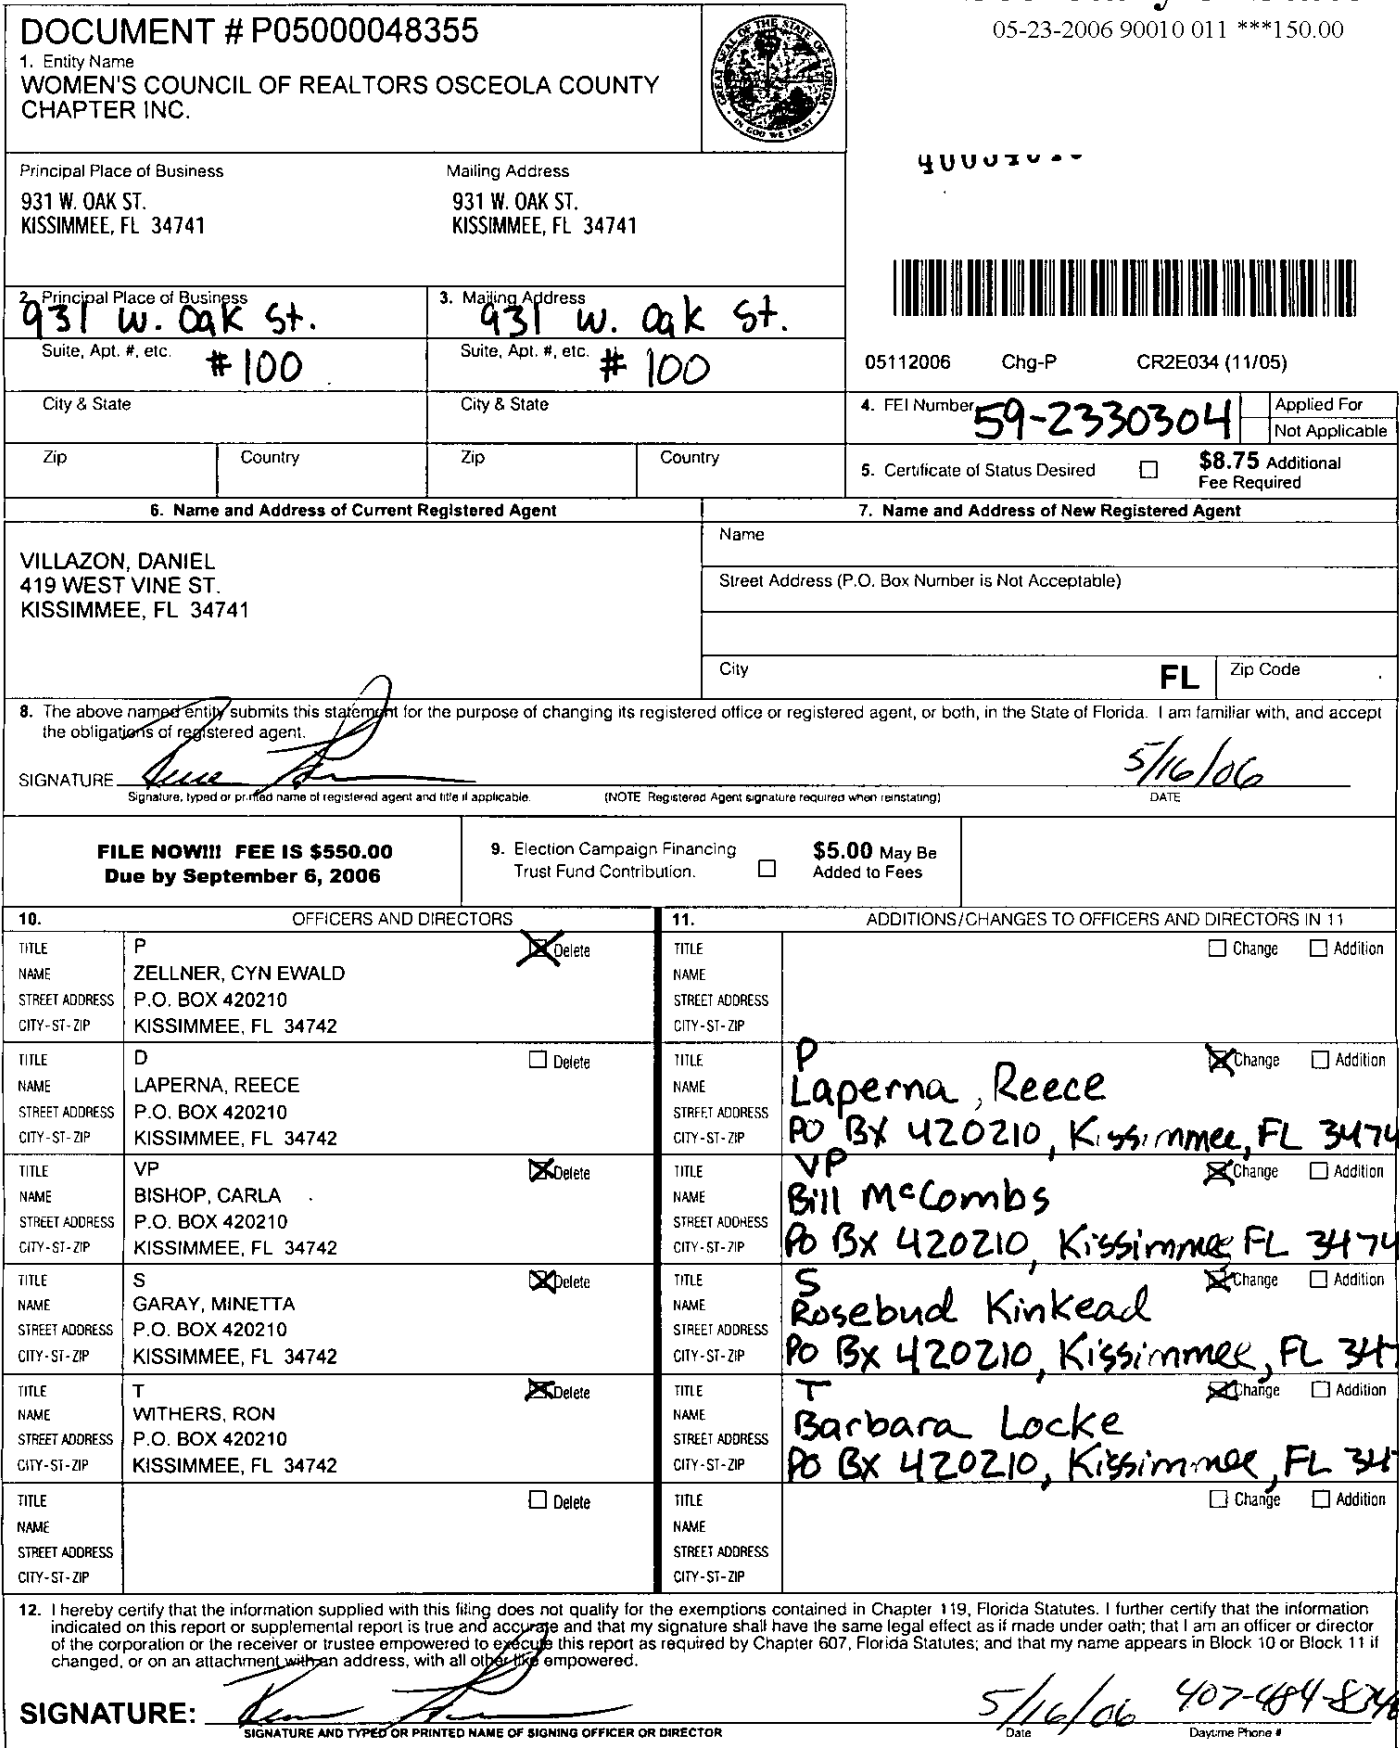 05-23-2006 90010 011 ***150.00
DOCUMENT # P05000048355
1. Entity Name
WOMEN'S COUNCIL OF REALTORS OSCEOLA COUNTY
CHAPTER INC.
GREAT SEAL OF THE STATE OF FLORIDA
IN GOD WE TRUST
Principal Place of Business
931 W. OAK ST.
KISSIMMEE, FL 34741
Mailing Address
931 W. OAK ST.
KISSIMMEE, FL 34741
2. Principal Place of Business
931 W. Oak St.
3. Mailing Address
931 W. Oak St.
Suite, Apt. #, etc. #100
Suite, Apt. #, etc. #100
05112006 Chg-P CR2E034 (11/05)
City & State
City & State
4. FEI Number 59-2330304
Applied For
Not Applicable
Zip Country
Zip Country
5. Certificate of Status Desired
$8.75 Additional
Fee Required
6. Name and Address of Current Registered Agent
VILLAZON, DANIEL
419 WEST VINE ST.
KISSIMMEE, FL 34741
7. Name and Address of New Registered Agent
Name
Street Address (P.O. Box Number is Not Acceptable)
City FL Zip Code
8. The above named entity submits this statement for the purpose of changing its registered office or registered agent, or both, in the State of Florida. I am familiar with, and accept
the obligations of registered agent.
SIGNATURE 5/16/06
Signature, typed or printed name of registered agent and title if applicable. (NOTE Registered Agent signature required when reinstating) DATE
FILE NOW!!! FEE IS $550.00
Due by September 6, 2006
9. Election Campaign Financing
Trust Fund Contribution.
$5.00 May Be
Added to Fees
10. OFFICERS AND DIRECTORS
TITLE P Delete
NAME ZELLNER, CYN EWALD
STREET ADDRESS P.O. BOX 420210
CITY-ST-ZIP KISSIMMEE, FL 34742
TITLE D Delete
NAME LAPERNA, REECE
STREET ADDRESS P.O. BOX 420210
CITY-ST-ZIP KISSIMMEE, FL 34742
TITLE VP Delete
NAME BISHOP, CARLA
STREET ADDRESS P.O. BOX 420210
CITY-ST-ZIP KISSIMMEE, FL 34742
TITLE S Delete
NAME GARAY, MINETTA
STREET ADDRESS P.O. BOX 420210
CITY-ST-ZIP KISSIMMEE, FL 34742
TITLE T Delete
NAME WITHERS, RON
STREET ADDRESS P.O. BOX 420210
CITY-ST-ZIP KISSIMMEE, FL 34742
TITLE Delete
NAME
STREET ADDRESS
CITY-ST-ZIP
11. ADDITIONS/CHANGES TO OFFICERS AND DIRECTORS IN 11
TITLE Change Addition
NAME
STREET ADDRESS
CITY-ST-ZIP
TITLE P Change Addition
NAME Laperna, Reece
STREET ADDRESS
CITY-ST-ZIP PO BX 420210, Kissimmee, FL 3474
TITLE VP Change Addition
NAME Bill McCombs
STREET ADDRESS
CITY-ST-ZIP PO BX 420210, Kissimmee FL 3474
TITLE S Change Addition
NAME Rosebud Kinkead
STREET ADDRESS
CITY-ST-ZIP PO BX 420210, Kissimmee, FL 347
TITLE T Change Addition
NAME Barbara Locke
STREET ADDRESS
CITY-ST-ZIP PO BX 420210, Kissimmee, FL 347
TITLE Change Addition
NAME
STREET ADDRESS
CITY-ST-ZIP
12. I hereby certify that the information supplied with this filing does not qualify for the exemptions contained in Chapter 119, Florida Statutes. I further certify that the information
indicated on this report or supplemental report is true and accurate and that my signature shall have the same legal effect as if made under oath; that I am an officer or director
of the corporation or the receiver or trustee empowered to execute this report as required by Chapter 607, Florida Statutes; and that my name appears in Block 10 or Block 11 if
changed, or on an attachment with an address, with all other like empowered.
SIGNATURE: 5/16/06 407-484-8346
SIGNATURE AND TYPED OR PRINTED NAME OF SIGNING OFFICER OR DIRECTOR Date Daytime Phone #